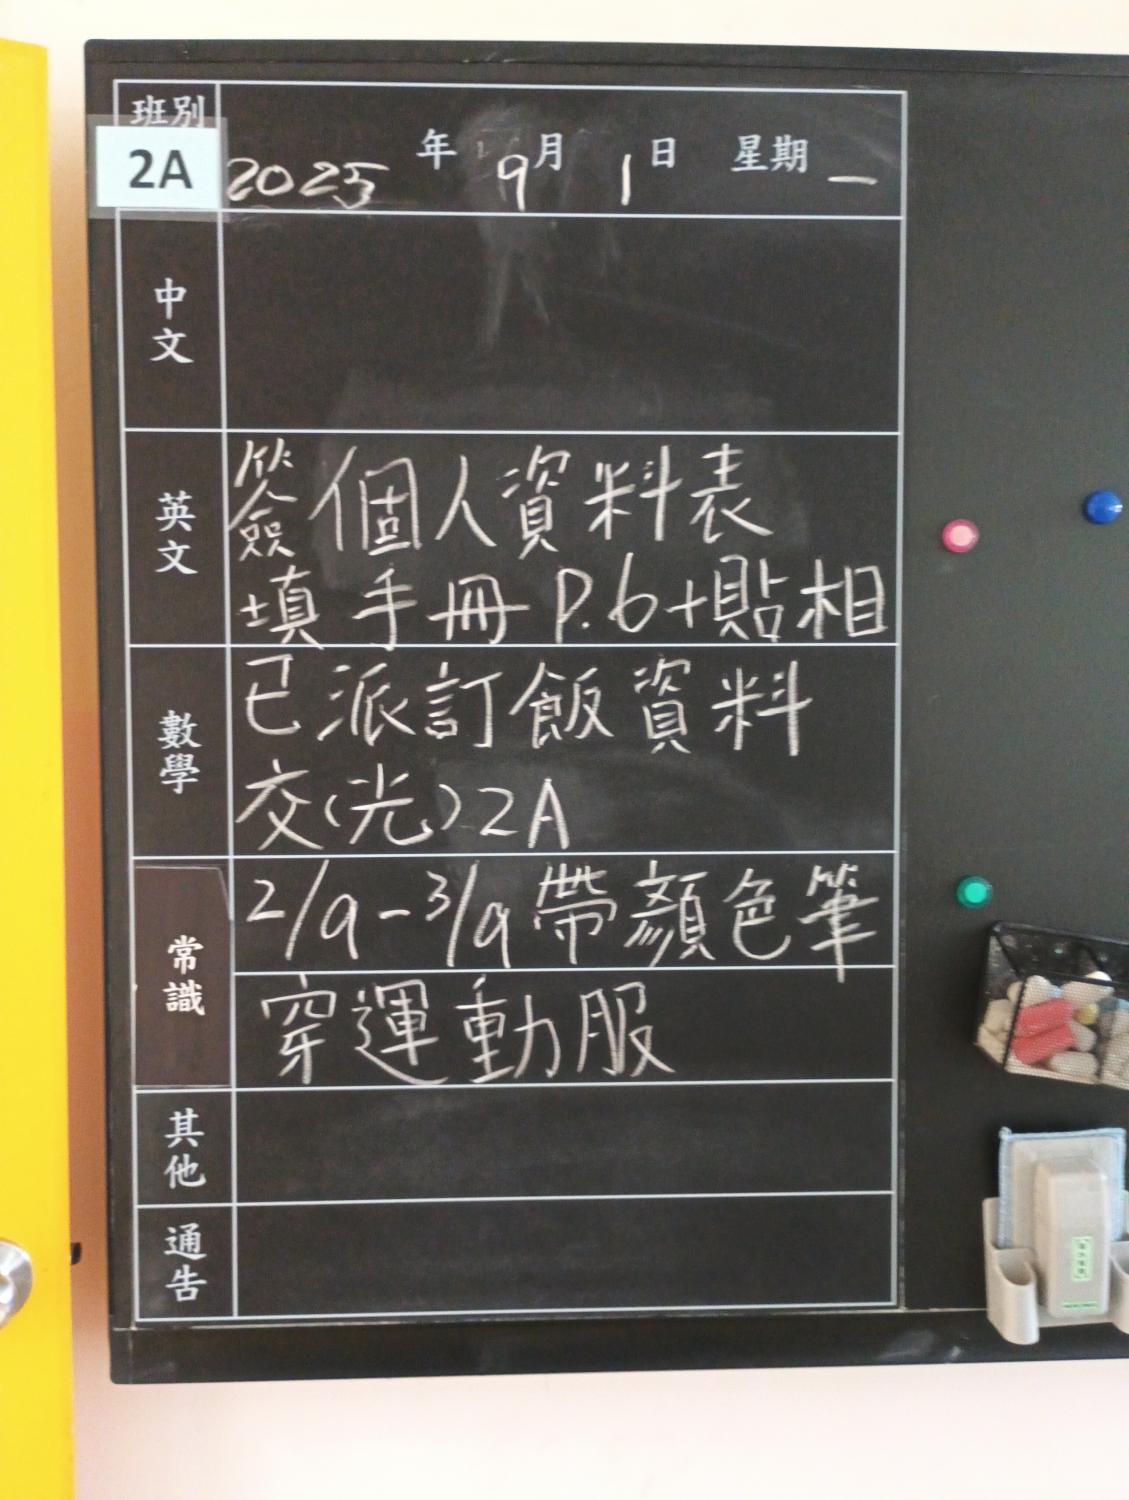 班別
2A
2025年9月1日 星期一
中文
英文
簽個人資料表
填手冊P.6+貼相
數學
已派訂飯資料
交(光)2A
常識
2/9-3/9帶顏色筆
穿運動服
其他
通告